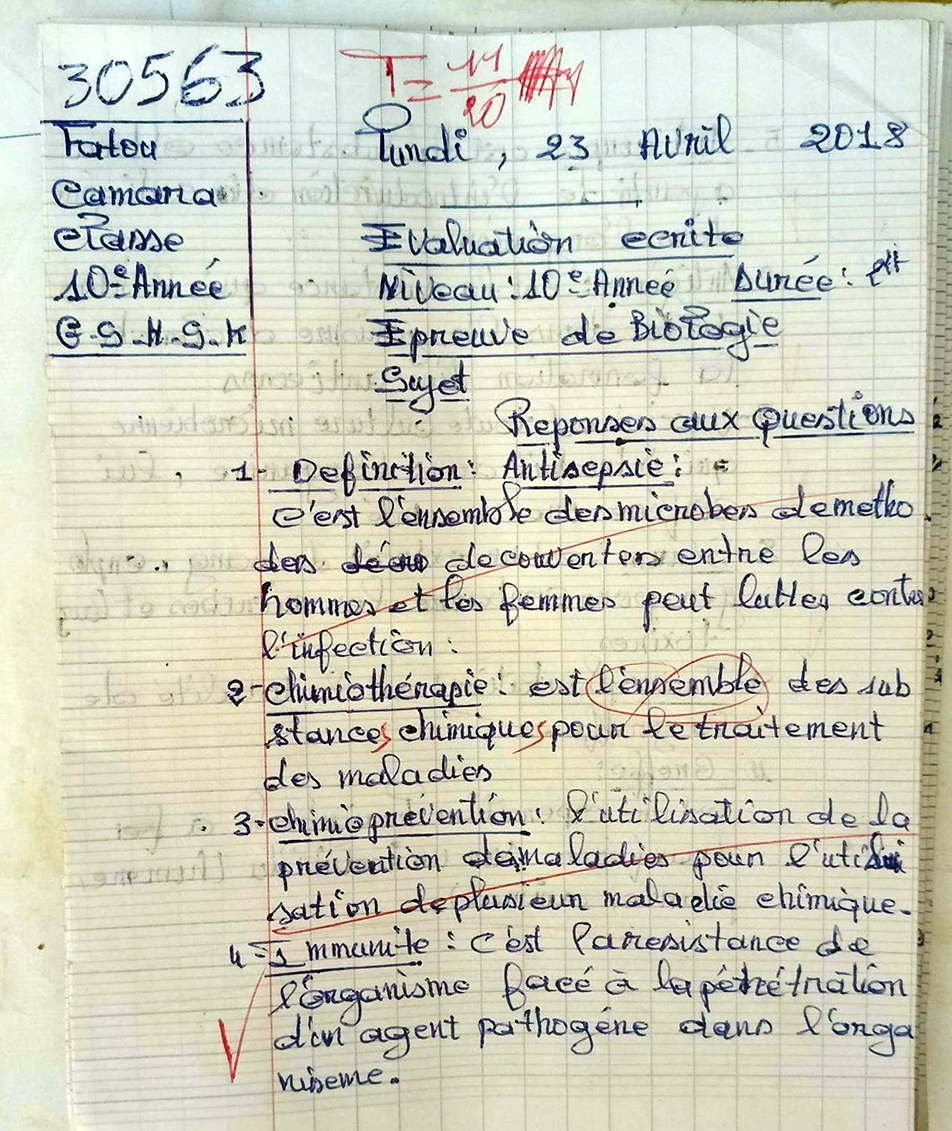 30563
T= 11/20
Fatou
Camara
classe
10e Année
C.S.H.S.K
Lundi, 23 Avril 2018
Evaluation ecrite
Niveau: 10e Année Durée:
Epreuve de Biologie
Sujet
Reponses aux Questions
1- Definition: Antisepsie:
c'est l'ensemble des microbes de metho
des decouverters entre les
hommes et les femmes peut lutter contre
l'infection:
2- chimiothérapie: est l'ensemble des sub
stances chimiques pour le traitement
des maladies
3- chimioprévention: l'utilisation de la
prévention de maladies pour l'utili
sation de plusieur maladie chimique.
4- Immunite: c'est la resistance de
l'organisme facé à la pénétration
d'un agent pathogéne dans l'orga
niseme.